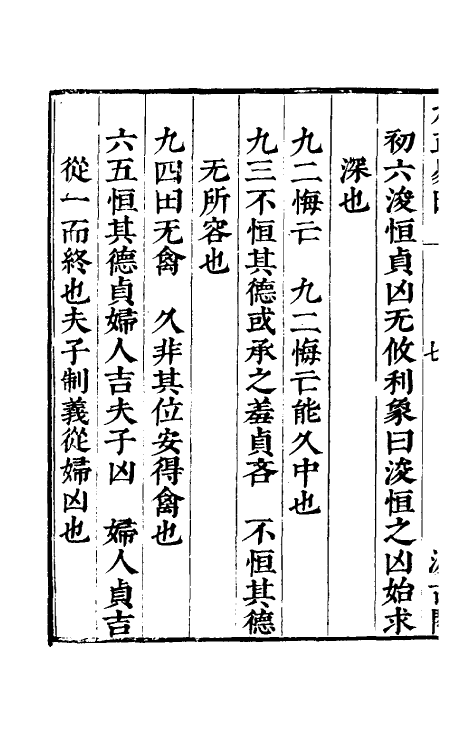 初六浚恒貞凶无攸利象曰浚恒之凶始求
深也
九二悔亡　九二悔亡能久中也
九三不恒其德或承之羞貞吝　不恒其德
无所容也
九四田无禽　久非其位安得禽也
六五恒其德貞婦人吉夫子凶　婦人貞吉
從一而終也夫子制義從婦凶也